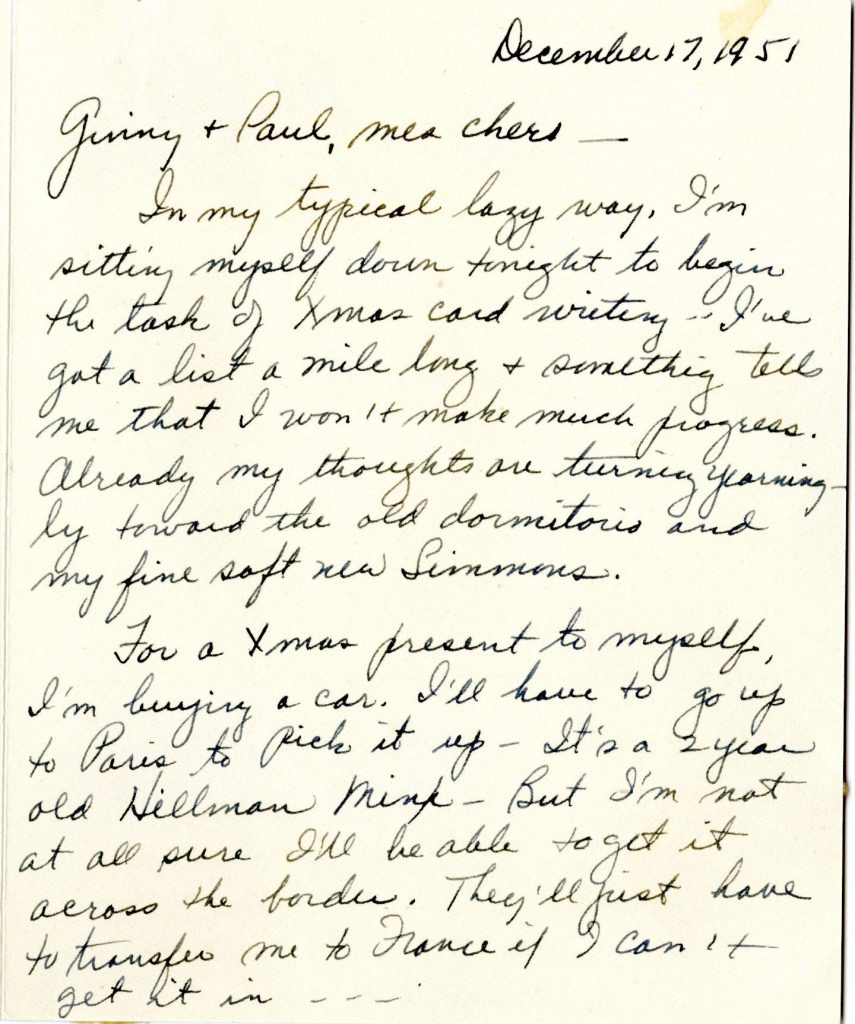 December 17, 1951
Ginny + Paul, mes chers —
In my typical lazy way, I'm
sitting myself down tonight to begin
the task of Xmas card writing -- I've
got a list a mile long + somethig tells
me that I won't make much progress.
Already my thoughts are turning yearning-
ly toward the old dormitorio and
my fine soft new Simmons.
For a Xmas present to myself,
I'm buying a car. I'll have to go up
to Paris to pick it up - It's a 2 year
old Hillman Minx - But I'm not
at all sure I'll be able to get it
across the border. They'll just have
to transfer me to France if I can't
get it in - - -